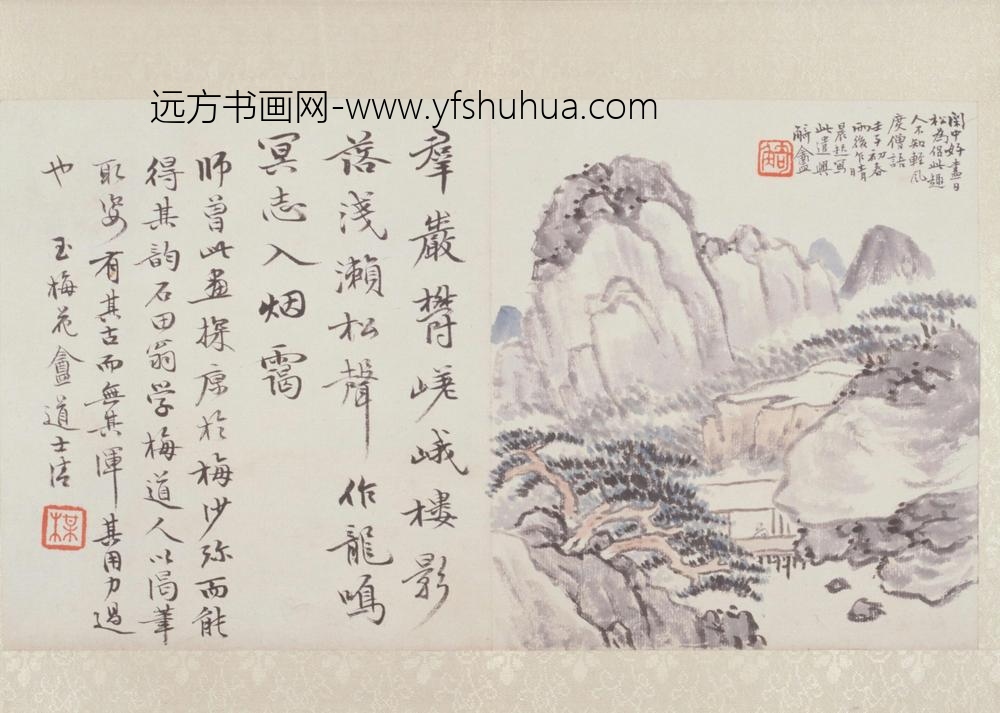 远方书画网-www.yfshuhua.com
閑中好盡日
松為侶此趣
人不知輕風
度僧語
壬子初春
雨後乍晴
晨起寫
此遣興
羣巖欝嵯峨樓影
落淺瀨松聲作龍鳴
冥志入烟靄
师曾此画探原於梅沙弥而能
得其韵石田翁学梅道人以渴筆
取姿有其古而無其渾其用力過
也
玉梅花盦道士
某